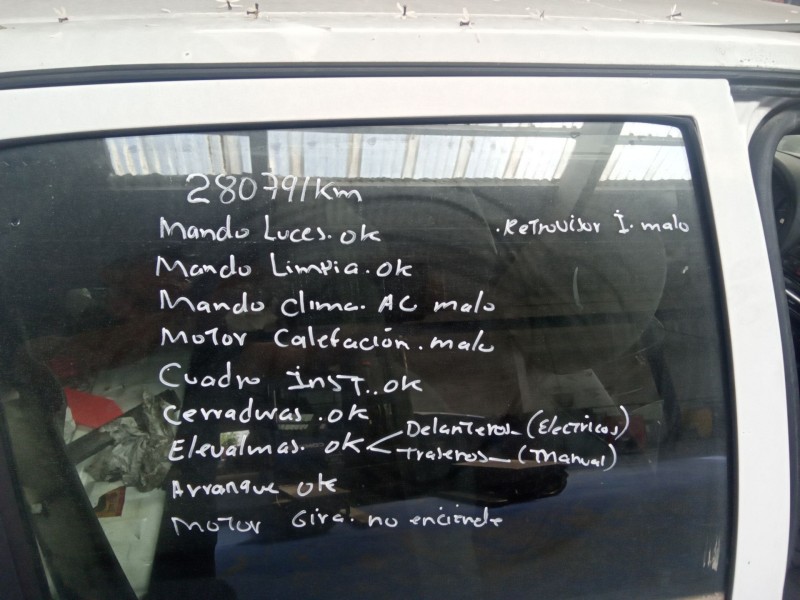 280791km
Mando Luces. ok
.Retrovisor I. malo
Mando Limpia. ok
Mando clima. AC malo
Motor Calefación. malo
Cuadro inst.. ok
Cerraduras. ok
Elevalunas. ok
Delanteros_ (Electricos)
Traseros_ (Manual)
Arranque ok
Motor Gira. no enciende